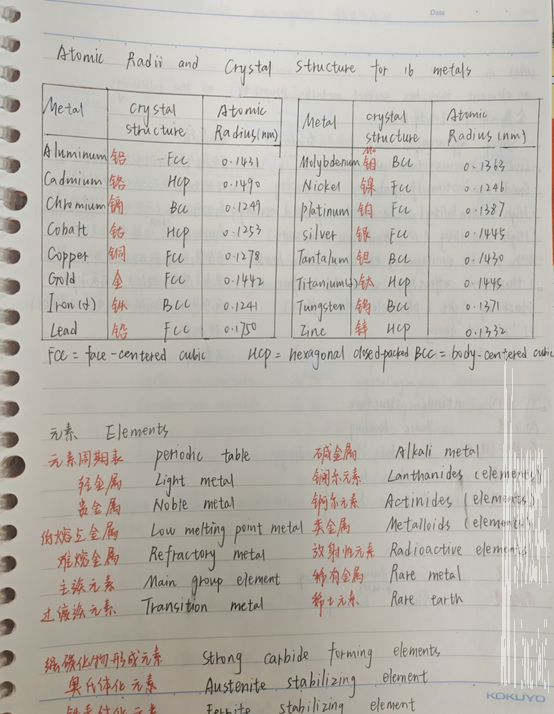 Date
Atomic Radii and Crystal Structure for 16 metals
Metal crystal structure Atomic Radius(nm) Metal crystal structure Atomic Radius(nm)
Aluminum 铝 FCC 0.1431 Molybdenum 钼 Mo BCC 0.1363
Cadmium 铬 HCP 0.1490 Nickel 镍 FCC 0.1246
Chromium 镉 BCC 0.1249 platinum 铂 FCC 0.1387
Cobalt 钴 HCP 0.1253 silver 银 FCC 0.1445
Copper 铜 FCC 0.1278 Tantalum 钽 BCC 0.1430
Gold 金 FCC 0.1442 Titanium(α) 钛 HCP 0.1445
Iron(α) 钬 BCC 0.1241 Tungsten 钨 BCC 0.1371
Lead 铅 FCC 0.1750 Zinc 锌 HCP 0.1332
FCC = face-centered cubic HCP = hexagonal closed-packed BCC = body-centered cubic
元素 Elements
元素周期表 periodic table 碱金属 Alkali metal
轻金属 Light metal 镧系元素 Lanthanides (elements)
贵金属 Noble metal 锕系元素 Actinides (elements)
低熔点金属 Low melting point metal 类金属 Metalloids (elements)
难熔金属 Refractory metal 放射性元素 Radioactive elements
主族元素 Main group element 稀有金属 Rare metal
过渡族元素 Transition metal 稀土元素 Rare earth
强碳化物形成元素 Strong carbide forming elements
奥氏体化元素 Austenite stabilizing element
铁素体化元素 Ferrite stabilizing element
KOKUYO